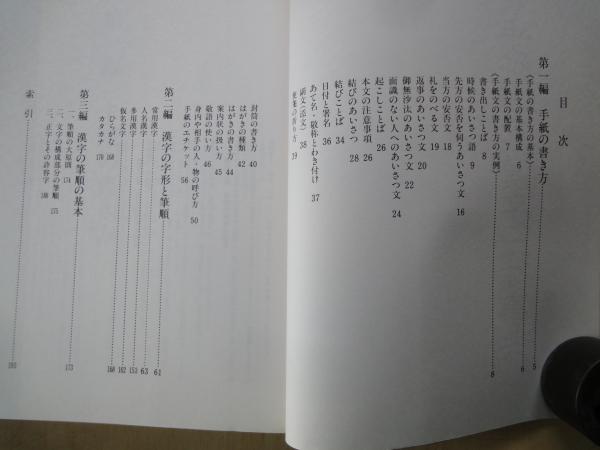 目次
第一編 手紙の書き方 5
〈手紙の書き方の基本〉
手紙文の構成 6
手紙文の配置 7
〈手紙文の書き方の実例〉 8
書き出しことば 8
時候のあいさつ語 9
先方の安否を伺うあいさつ文 16
当方の安否文 18
礼をのべる文 19
返事のあいさつ文 20
御無沙汰のあいさつ文 22
面識のない人へのあいさつ文 24
起こしことば 26
本文の注意事項 26
結びのあいさつ 28
結びことば 34
日付と署名 36
あて名・敬称とわき付け 37
副文(添文) 38
便箋の折り方 39
封筒の書き方 40
はがきの種類 42
はがきの書き方 44
案内状の扱い方 45
敬語の使い方 46
身内や相手の人・物の呼び方 50
手紙のエチケット 56
第二編 漢字の字形と筆順 61
常用漢字 63
人名漢字 153
多用漢字 162
仮名文字 168
ひらがな 168
カタカナ 170
第三編 漢字の筆順の基本 173
一、筆順の大原則 174
二、文字の構成部分の筆順 175
三、正字とその許容字 188
索引 193